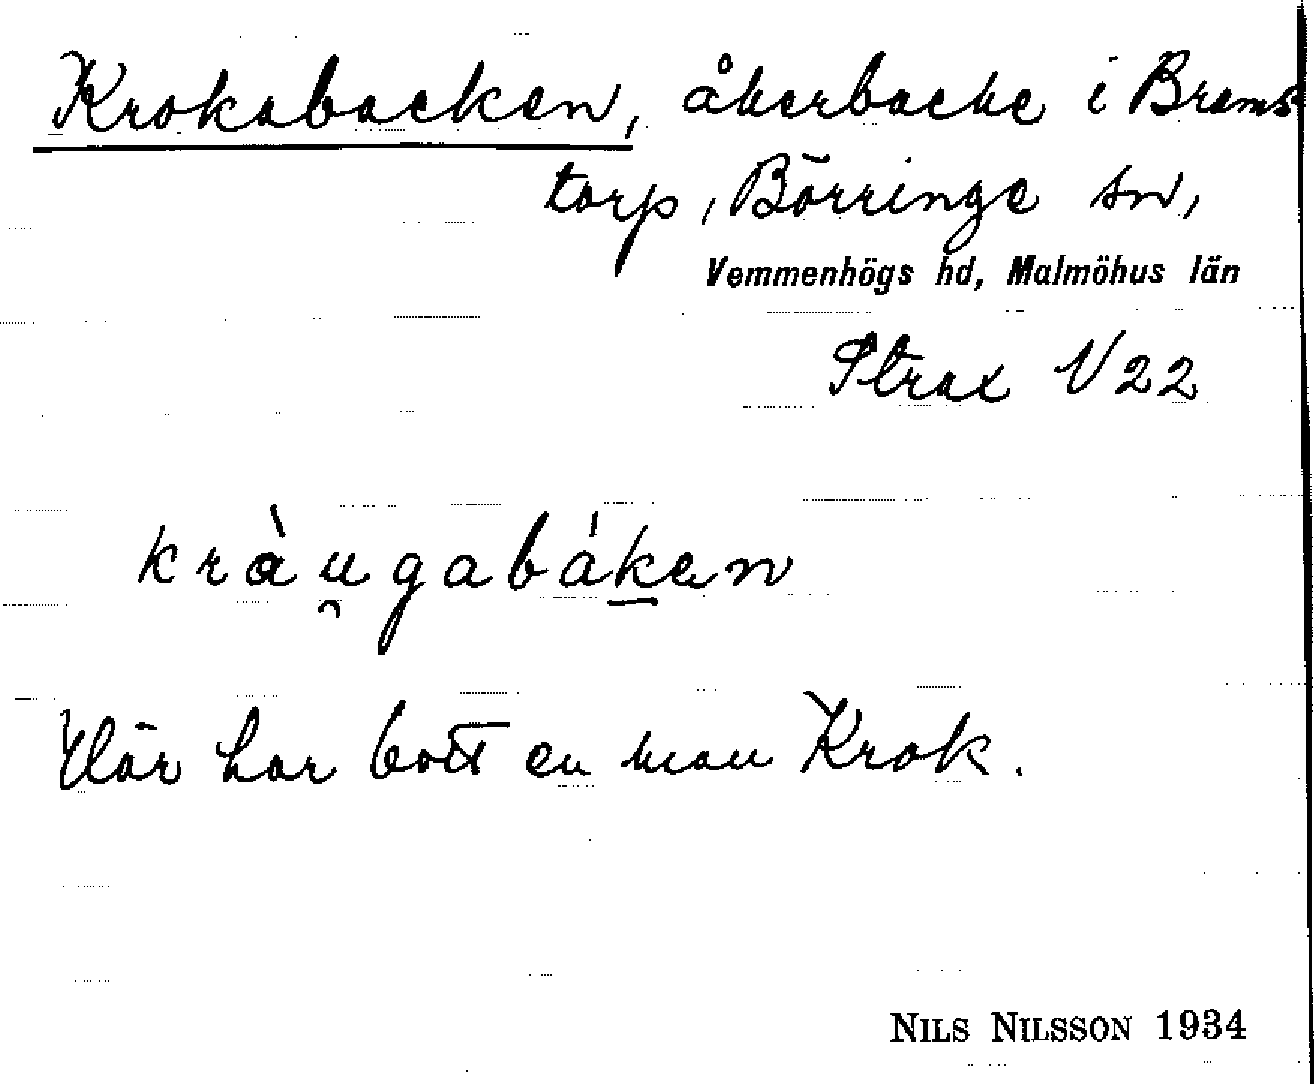 Krokabacken, åkerbacke i Brams-
torp, Börringe sn,
Vemmenhögs hd, Malmöhus län
Strax V 22
kràu̯gabák̠en
Där har bott en man Krok.
NILS NILSSON 1934